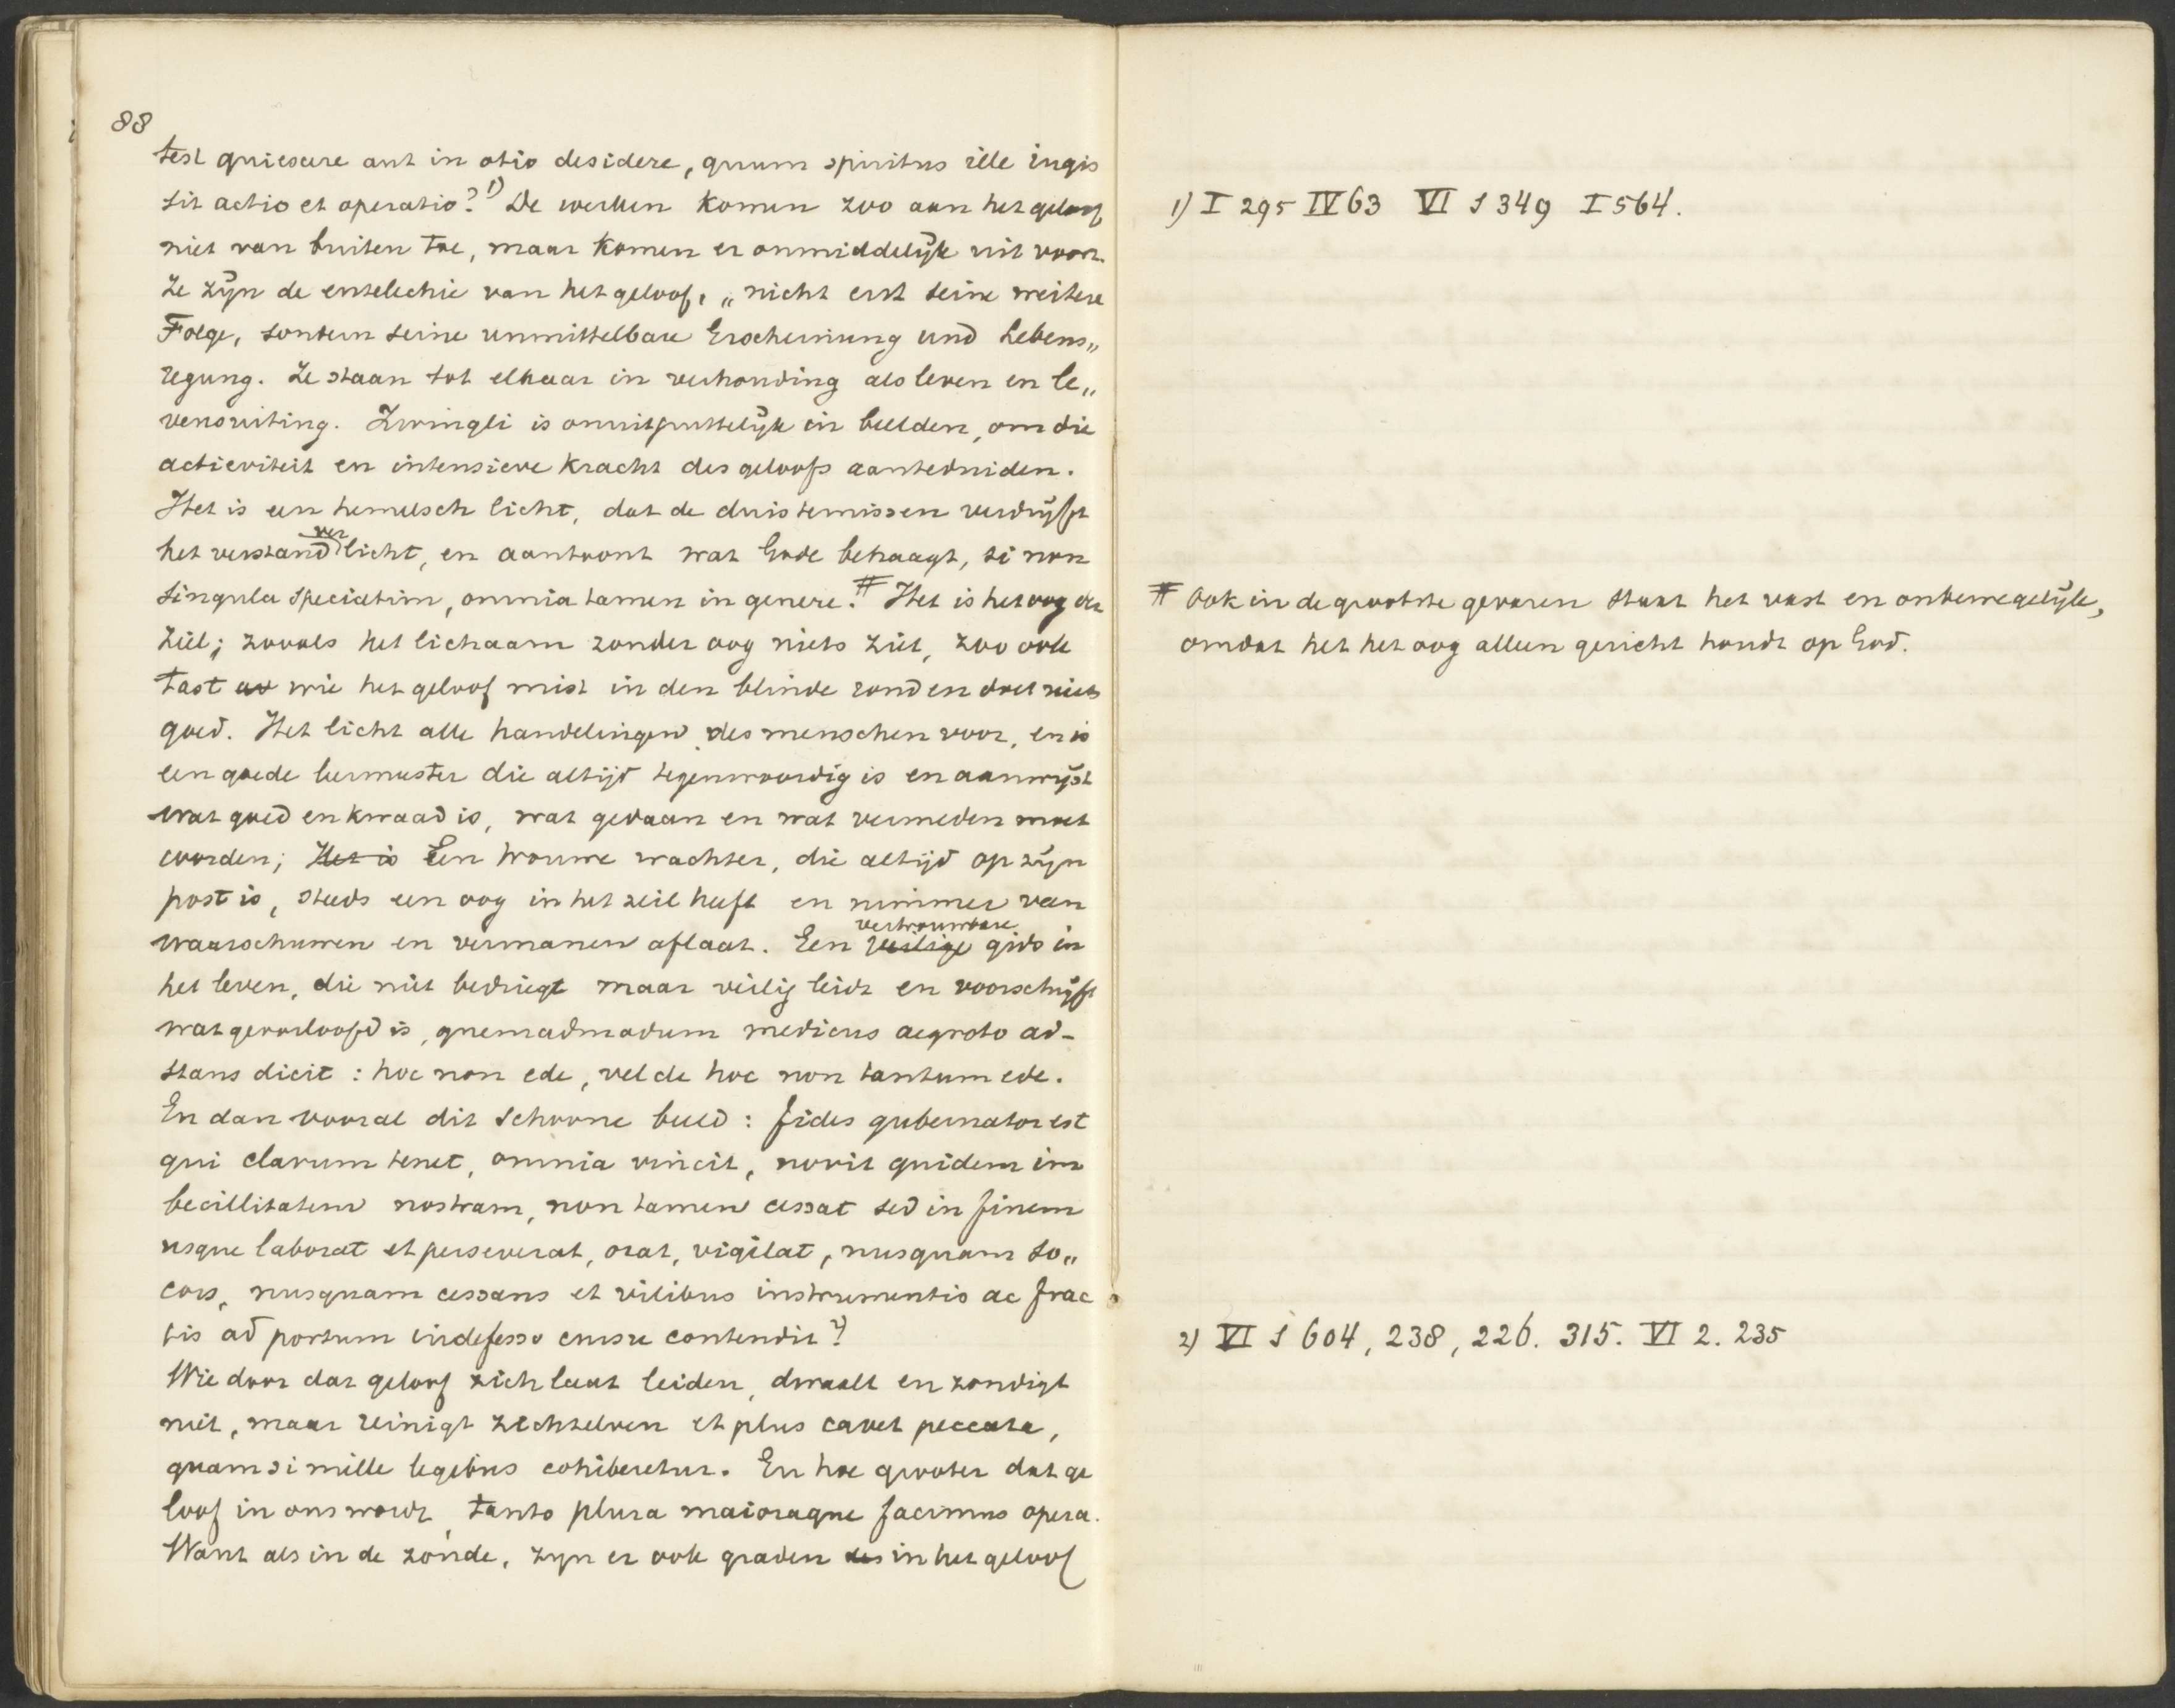 88
test quiescere aut in otio desidere, quum spiritus ille iugis
sit actio et operatio? 1) De werken komen zoo aan het geloof
niet van buiten toe, maar komen er onmiddelijk uit voort.
Ze zijn de entelechie van het geloof, „nicht erst seine weitere
Folge, sondern seine unmittelbare Erscheinung und Lebens„
regung. Ze staan tot elkaar in verhouding als leven en le„
vensuiting. Zwingli is onuitputtelijk in beelden, om die
activiteit en intensieve kracht des geloofs aanteduiden.
Het is een hemelsch licht, dat de duisternissen verdrijft
het verstand verlicht, en aantoont wat Gode behaagt, si non
singula speciatim, omnia tamen in genere. # Het is het oog der
ziel; zooals het lichaam zonder oog niets ziet, zoo ook
tast wie het geloof mist in den blinde rond en doet niets
goed. Het licht alle handelingen des menschen voor, en is
een goede leermeester die altijd tegenwoordig is en aanwijst
wat goed en kwaad is, wat gedaan en wat vermeden moet
worden; Het is Een trouwe wachter, die altijd op zijn
post is, steeds een oog in het zeil heeft en nimmer van
waarschuwen en vermanen aflaat. Een veilige vertrouwbare gids in
het leven, die niet bedriegt maar veilig leidt en voorschrijft
wat geoorloofd is, quemadmodum medicus aegroto ad-
stans dicit: hoc non ede, vel de hoc non tantum ede.
En dan vooral dit schoone beeld: fides gubernator est
qui clavum tenet, omnia vincit, novit quidem im
becillitatem nostram, non tamen cessat sed in finem
usque laborat et perseverat, orat, vigilat, nusquam so„
cors, nusquam cessans et vilibus instrumentis ac frac
tis ad portum indefesso cursu contendit 2)
Wie door dat geloof zich laat leiden, dwaalt en zondigt
niet, maar reinigt zichzelven et plus cavet peccata,
quam si mille legibus cohiberetur. En hoe grooter dat ge
loof in ons wordt, tanto plura maioraque facimus opera.
Want als in de zonde, zijn er ook graden des in het geloof
1) I 295 IV 63 VI 1 349 I 564.
# Ook in de grootste gevaren staat het vast en onbewegelijk,
omdat het het oog alleen gericht houdt op God.
2) VI 1 604, 238, 226. 315. VI 2. 235